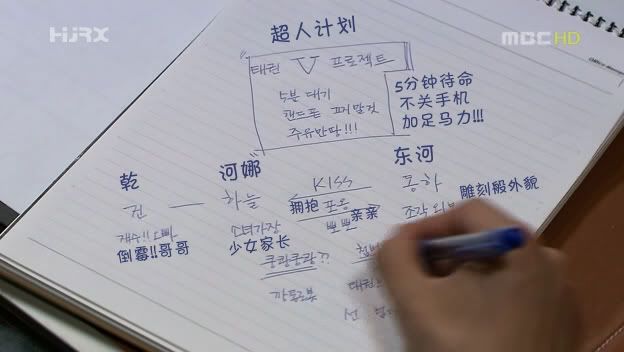 HJRX
MBC HD
超人计划
태권 V 프로젝트
5분 대기
핸드폰 꺼져말것
주유만땅!!!
5分钟待命
不关手机
加足马力!!!
乾 河娜 东河
건 하늘 KISS 동하
拥抱 포옹
뽀뽀 亲亲
雕刻般外貌
조각 외모
재수!! 오빠
倒霉!!哥哥
소녀가장
少女家长
쿵쾅쿵쾅??